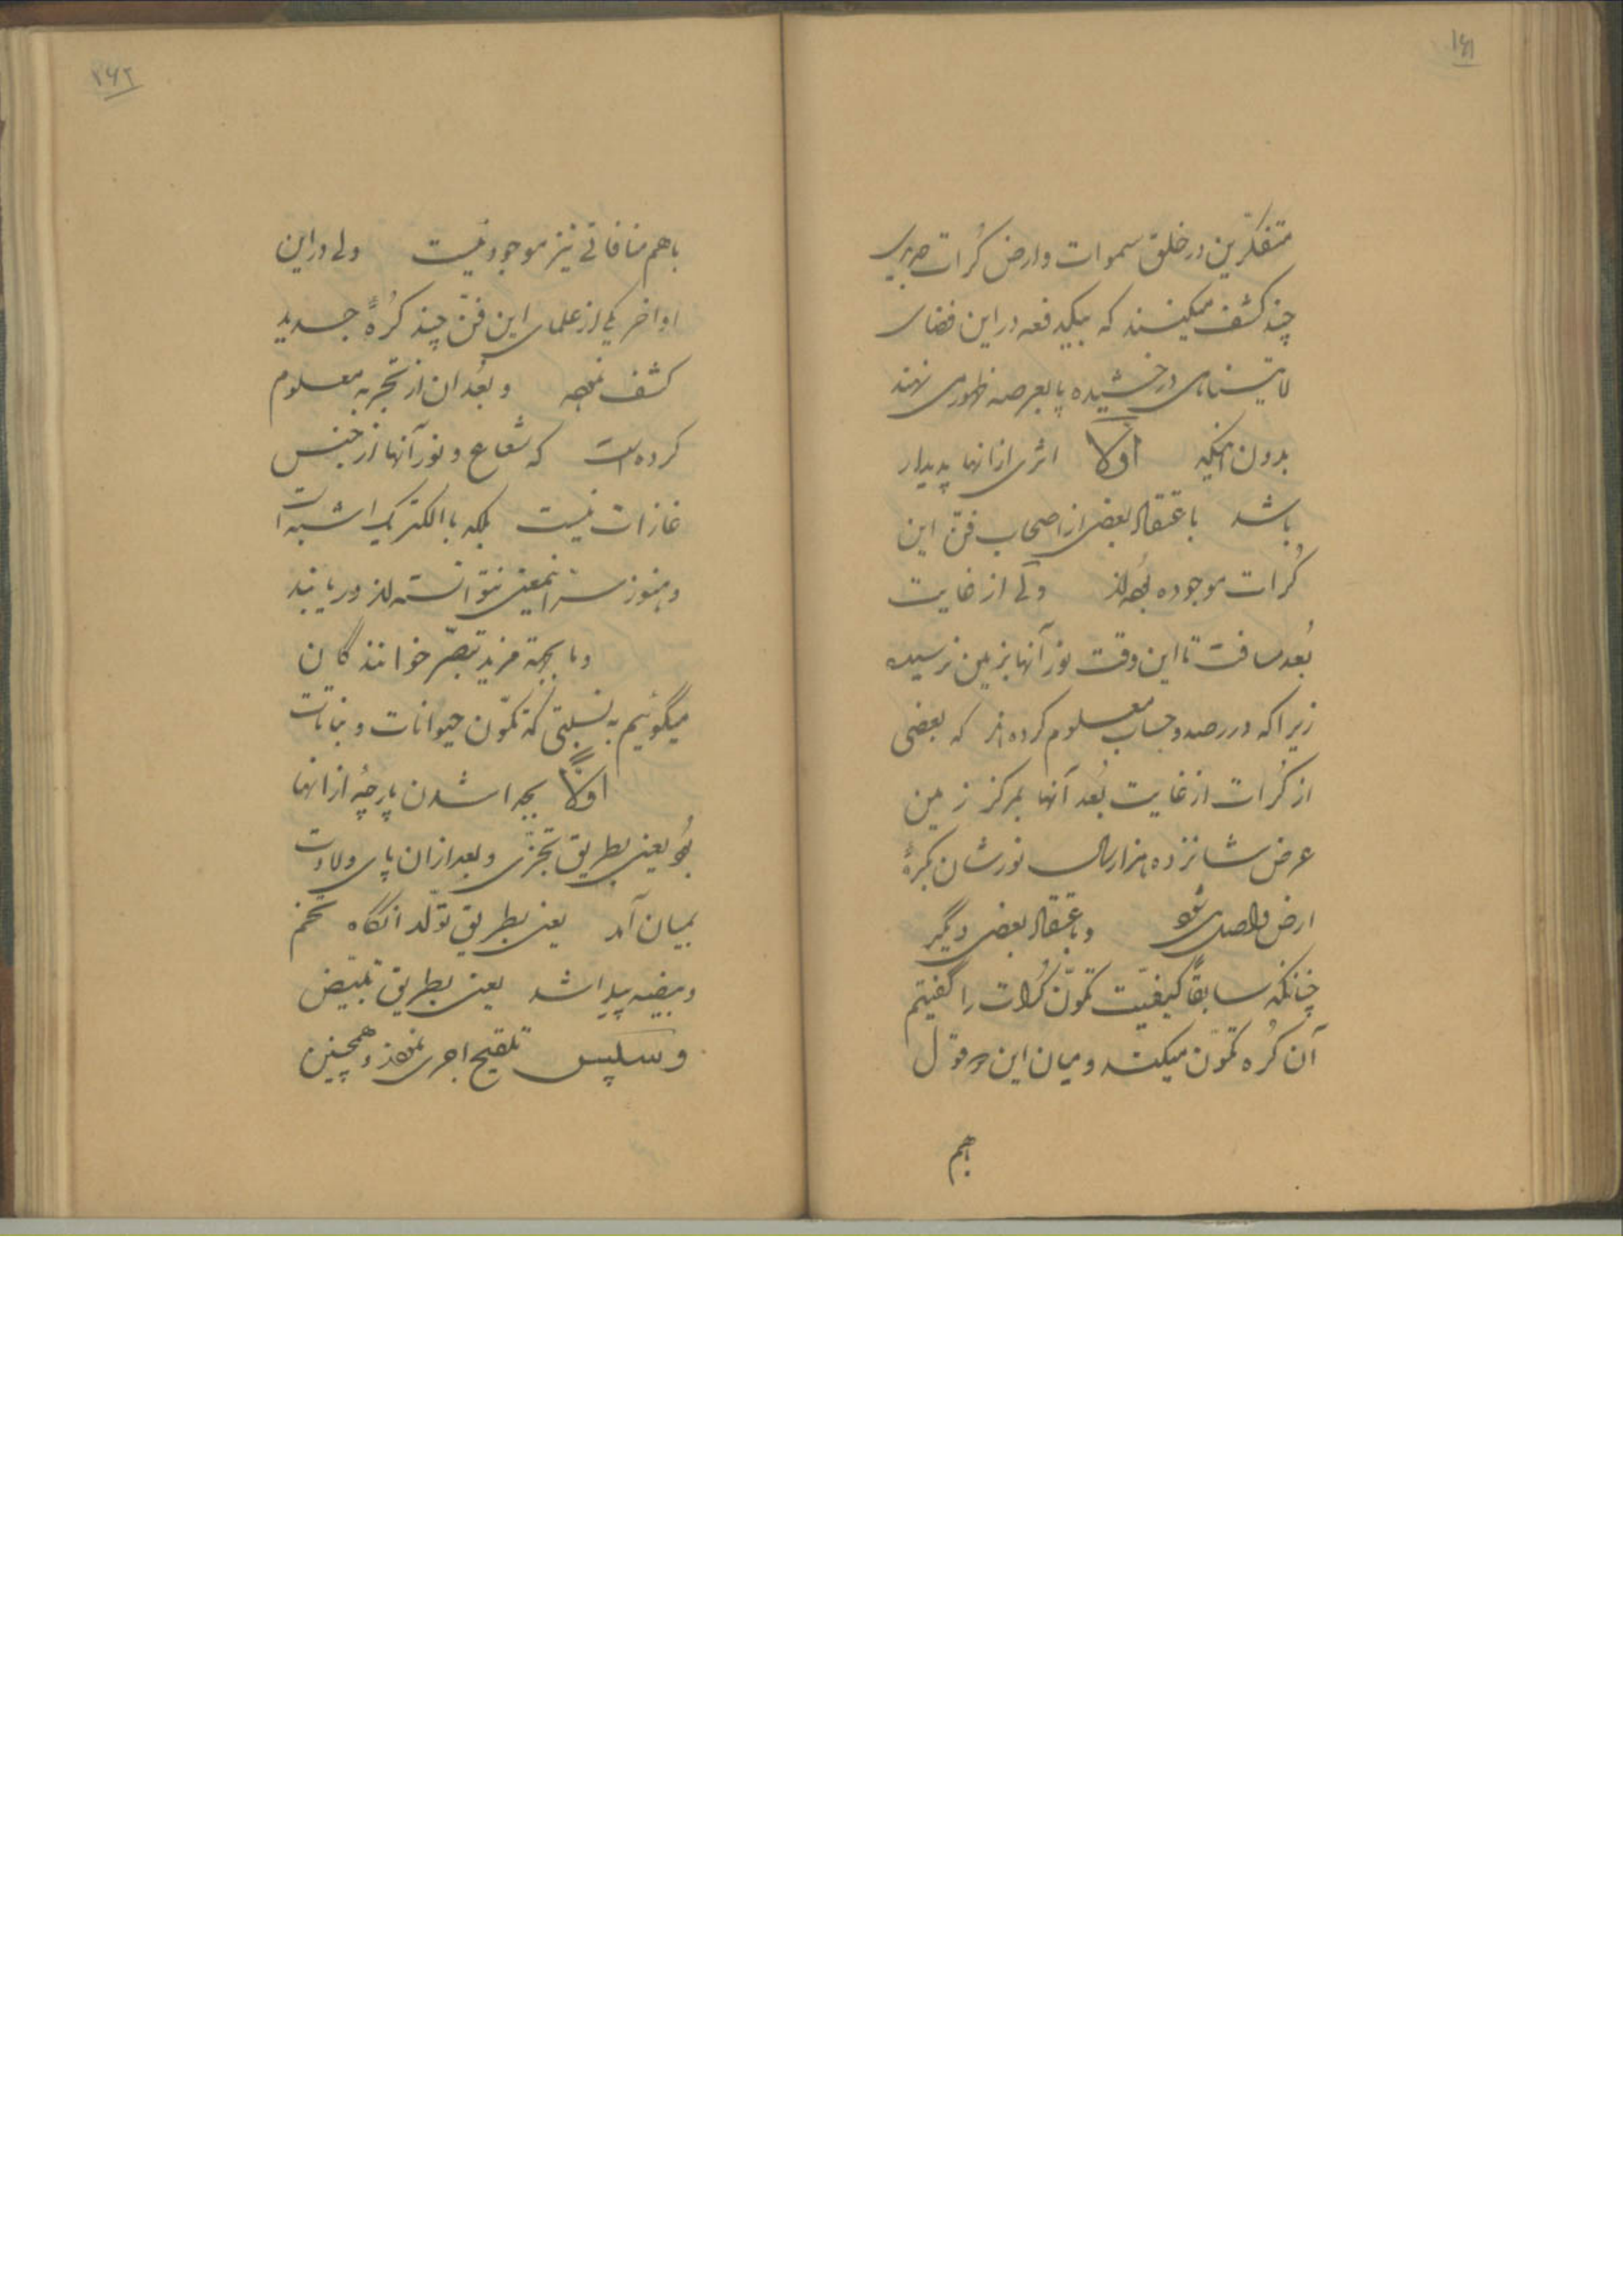 ۱۶۱
متفکّرین در خلق سموات وارض کُرات جدیدی
چند کشف میکنند که بیکدفعه در این فضای
لایتناهی درخشیده پا بعرصه ظهور می نهند
بدون اینکه اوّلاً اثری از انها پدیدار
باشد باعتقاد بعضی از اصحاب فنّ این
کُرات موجوده بوده اند ولی از غایت
بُعد مسافت تا این وقت نور آنها بزمین نرسیده
زیرا که در رصد و حساب معلوم کرده اند که بعضی
از کُرات از غایت بُعد آنها بمرکز زمین
عرض شانزده هزار سال نورشان بکرهٔ
ارض واصل می شود و باعتقاد بعضی دیگر
چنانکه سابقاً کیفیّت تکوّن کُرات را گفتیم
آن کُره تکوّن میکند و میان این دو قول
باهم
۱۶۲
باهم منافاتی نیز موجود نیست ولی در این
اواخر یکی از علمای این فنّ چند کُرهٔ جدید
کشف نموده و بعد ان از تجربه معلوم
کرده است که شعاع و نور آنها از جنس
غازات نیست بلکه با الکتریک اشبه است
و هنوز سرّ اینمعنی نتوانسته اند دریابند
و ما بجهة مزید تبصّر خوانندگان
میگوئیم به نسبتی که تکوّن حیوانات و نباتات
اوّلاً بجدا شدن پارچهٔ از انها
بود یعنی بطریق تجزّی و بعد از ان پای ولادت
بمیان آمد یعنی بطریق تولّد انگاه تخم
و بیضه پیدا شد یعنی بطریق تبیّض
و سپس تلقیح اجری نمودند و همچنین